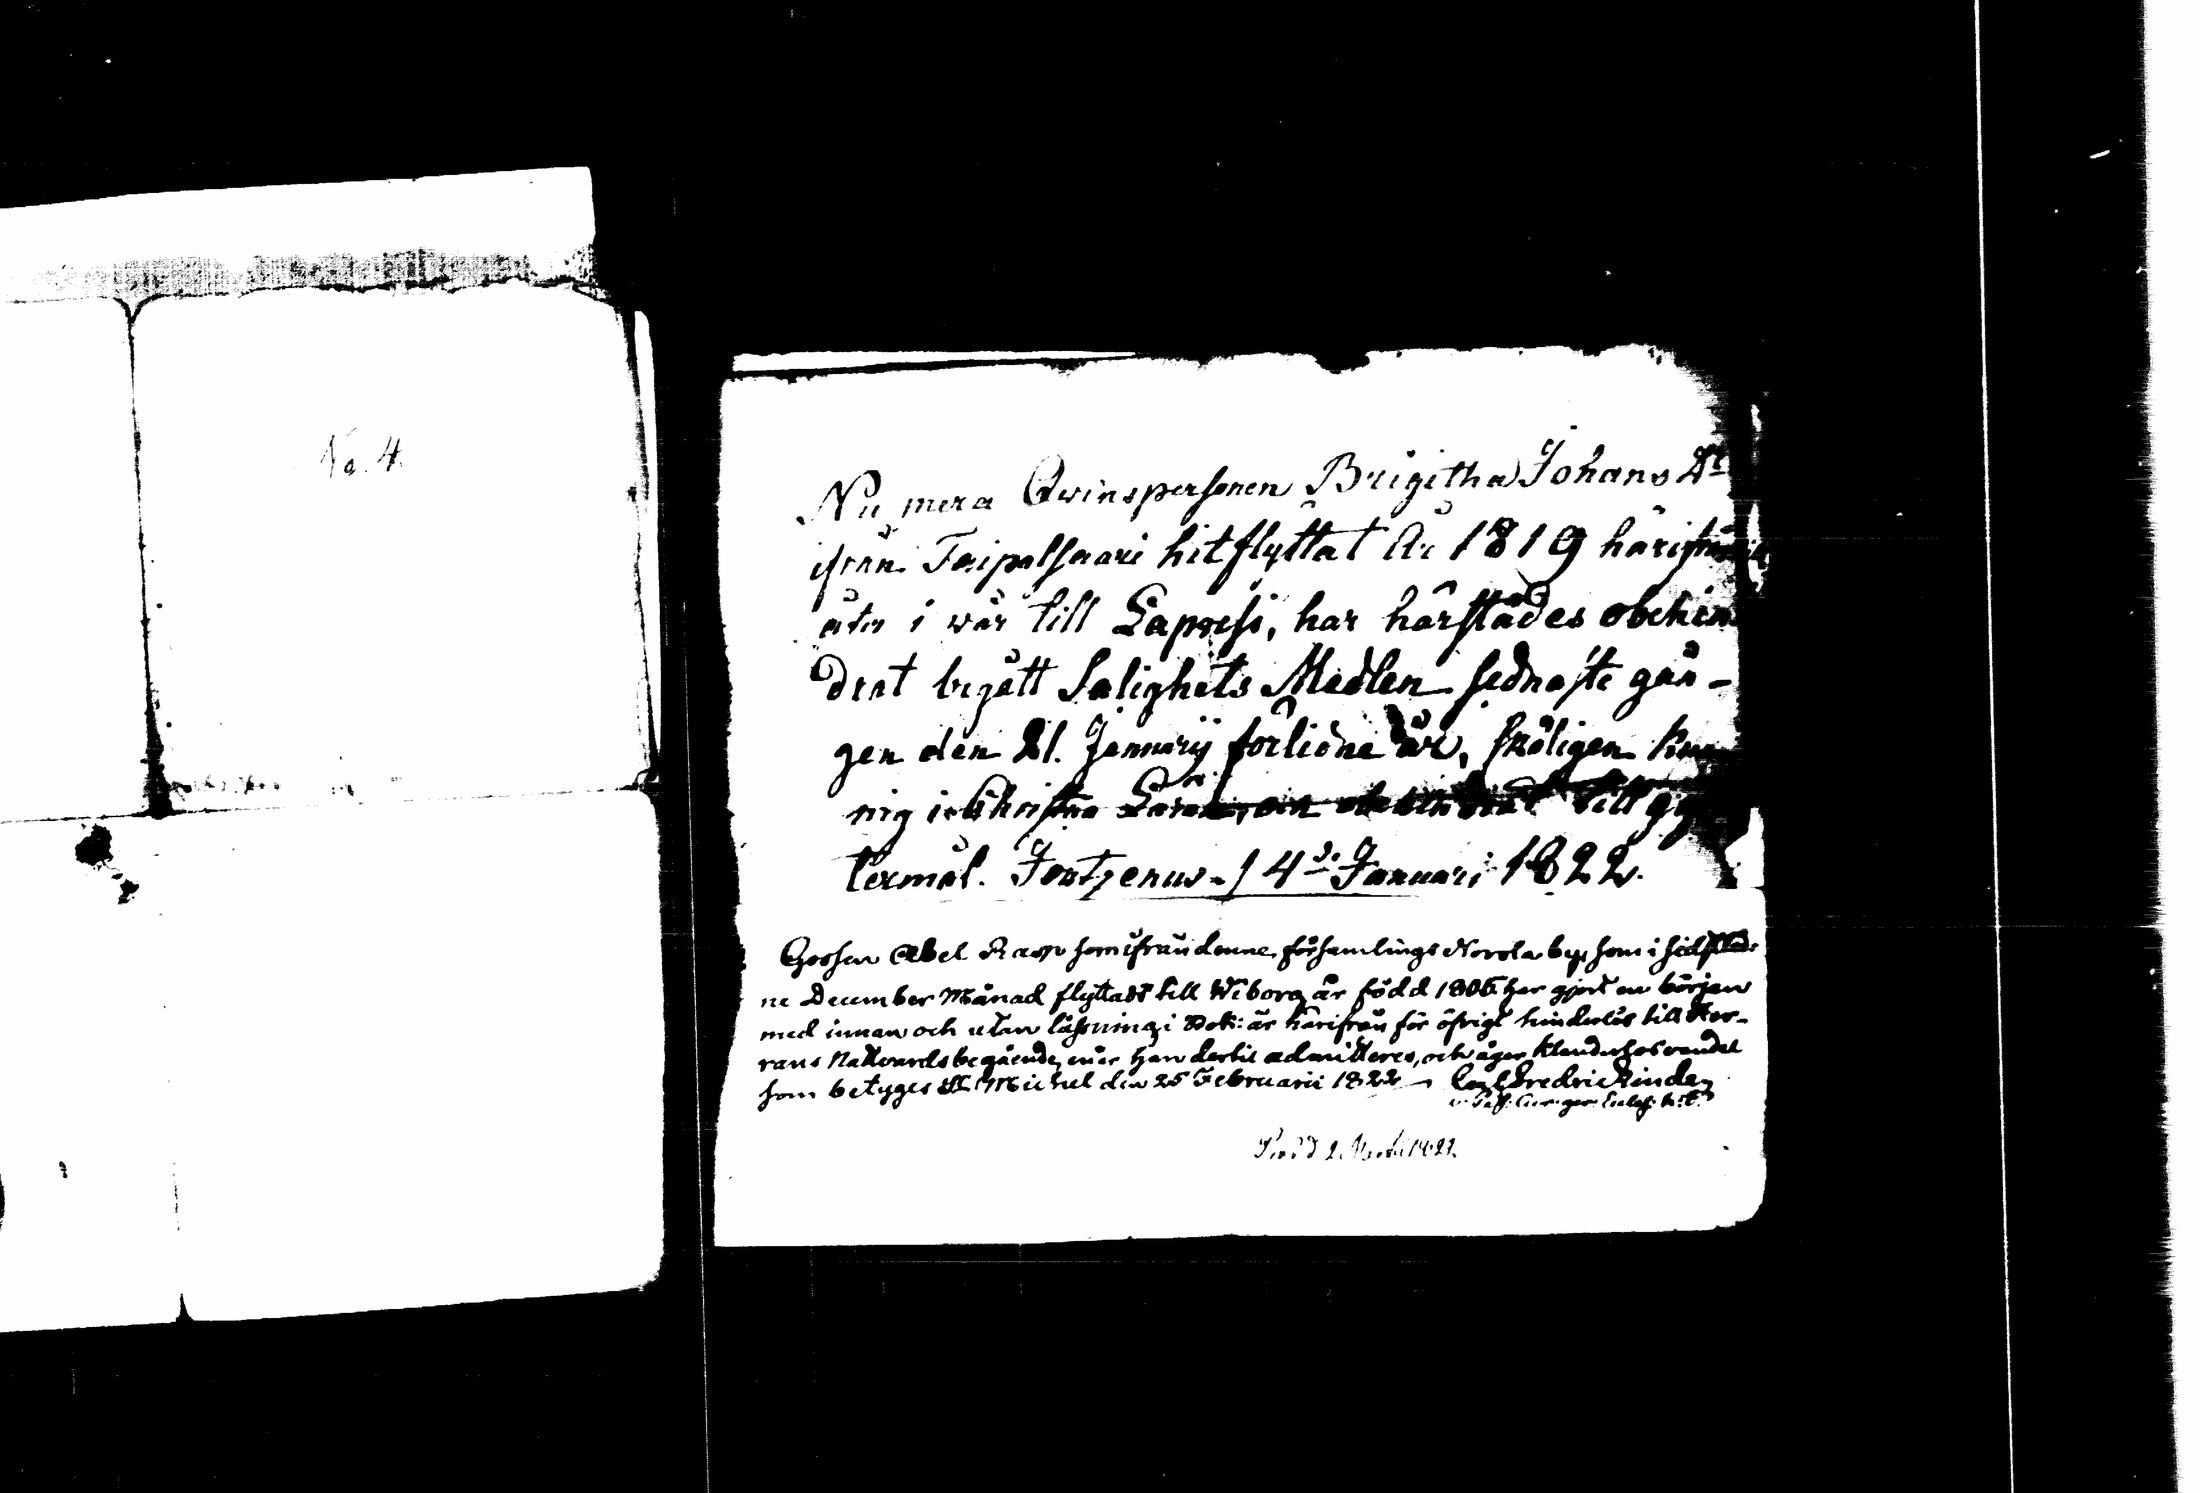 No. 4.
Nu mera Qwinspersonen Brigitha Johans Dr
ifrån Taipalsaari hitflyttat År 1819 härifrån
åter i wår till Lapvesi, har härstädes obehin
drat begått Salighets Medlen sednaste gån-
gen den 21. Januarij förlidne år, skäligen kun
nig i Christna Läran, och obehindrat till äg
termål. Joutzenus 14de Januari 1822.
Gossen Abel som ifrån denne församlings Norola by som i sidst
ne December Månad flyttadt till Wiborg är född 1806 har gjort en början
med innan och utan läsning i Bok: är härifrån för öfrigt hinderlös till Her-
rans Nattvards begående, när han dertil admitteres, och äger klanderlös vandel
som betyges St Michel den 25 Februarii 1822 Carl Fredric
d 2 Martii 1822.